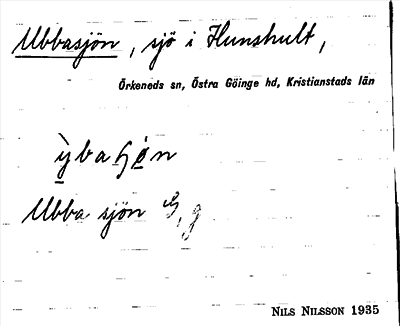 Ubbasjön, sjö i Hunshult,
Örkeneds sn, Östra Göinge hd, Kristianstads län
Ubba sjön
NILS NILSSON 1935